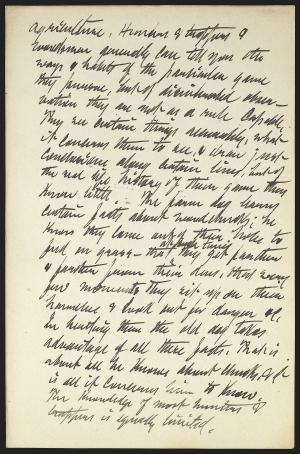 agriculture. Hunters & trappers &
woodsmen generally can tell you the
ways & habits of the particular game
they pursue, but of disinterested obser-
vation they are not as a rule capable.
They see certain things accurately, what
it concerns them to see, & draw just
conclusions along certain lines, but of
the real life history of these game they
know little. The farm dog learns
certain facts about woodchucks; he
knows they come out of their holes to
feed on grass - that at such times they get farther
& farther from their dens, that every
few moments they sit up on their
haunches & look out for danger &c.
In hunting them the old dog takes
advantage of all these facts. That is
about all he knows about chucks, & it
is all it concerns him to know.
The knowledge of most hunters &
trappers is equally limited.